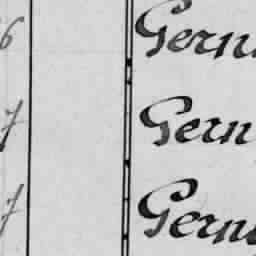 6 Gern
7 Gern
7 Gern